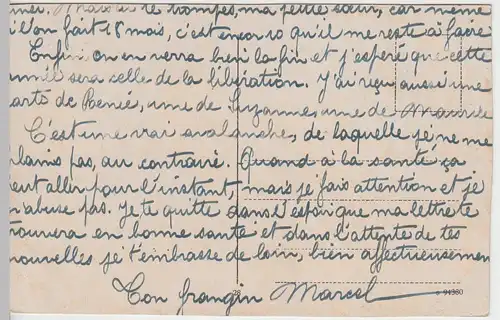 Mais tu te trompes, ma petite sœur, car même
si l'on fait 18 mois, c'est encor 10 qu'il me reste à faire
Enfin on en verra bien la fin et j'espère que cette
année sera celle de la libération. J'ai reçu aussi une
carte de Renée, une de Suzanne, une de Maurice
C'est une vrai avalanche, de laquelle je ne me
plains pas, au contraire. Quand à la santé, ça
peut aller pour l'instant, mais je fais attention et je
n'abuse pas. Je te quitte dans l'espoir que ma lettre te
trouvera en bonne santé et dans l'attente de tes
nouvelles je t'embrasse de loin, bien affectueusement
Ton frangin Marcel
94380